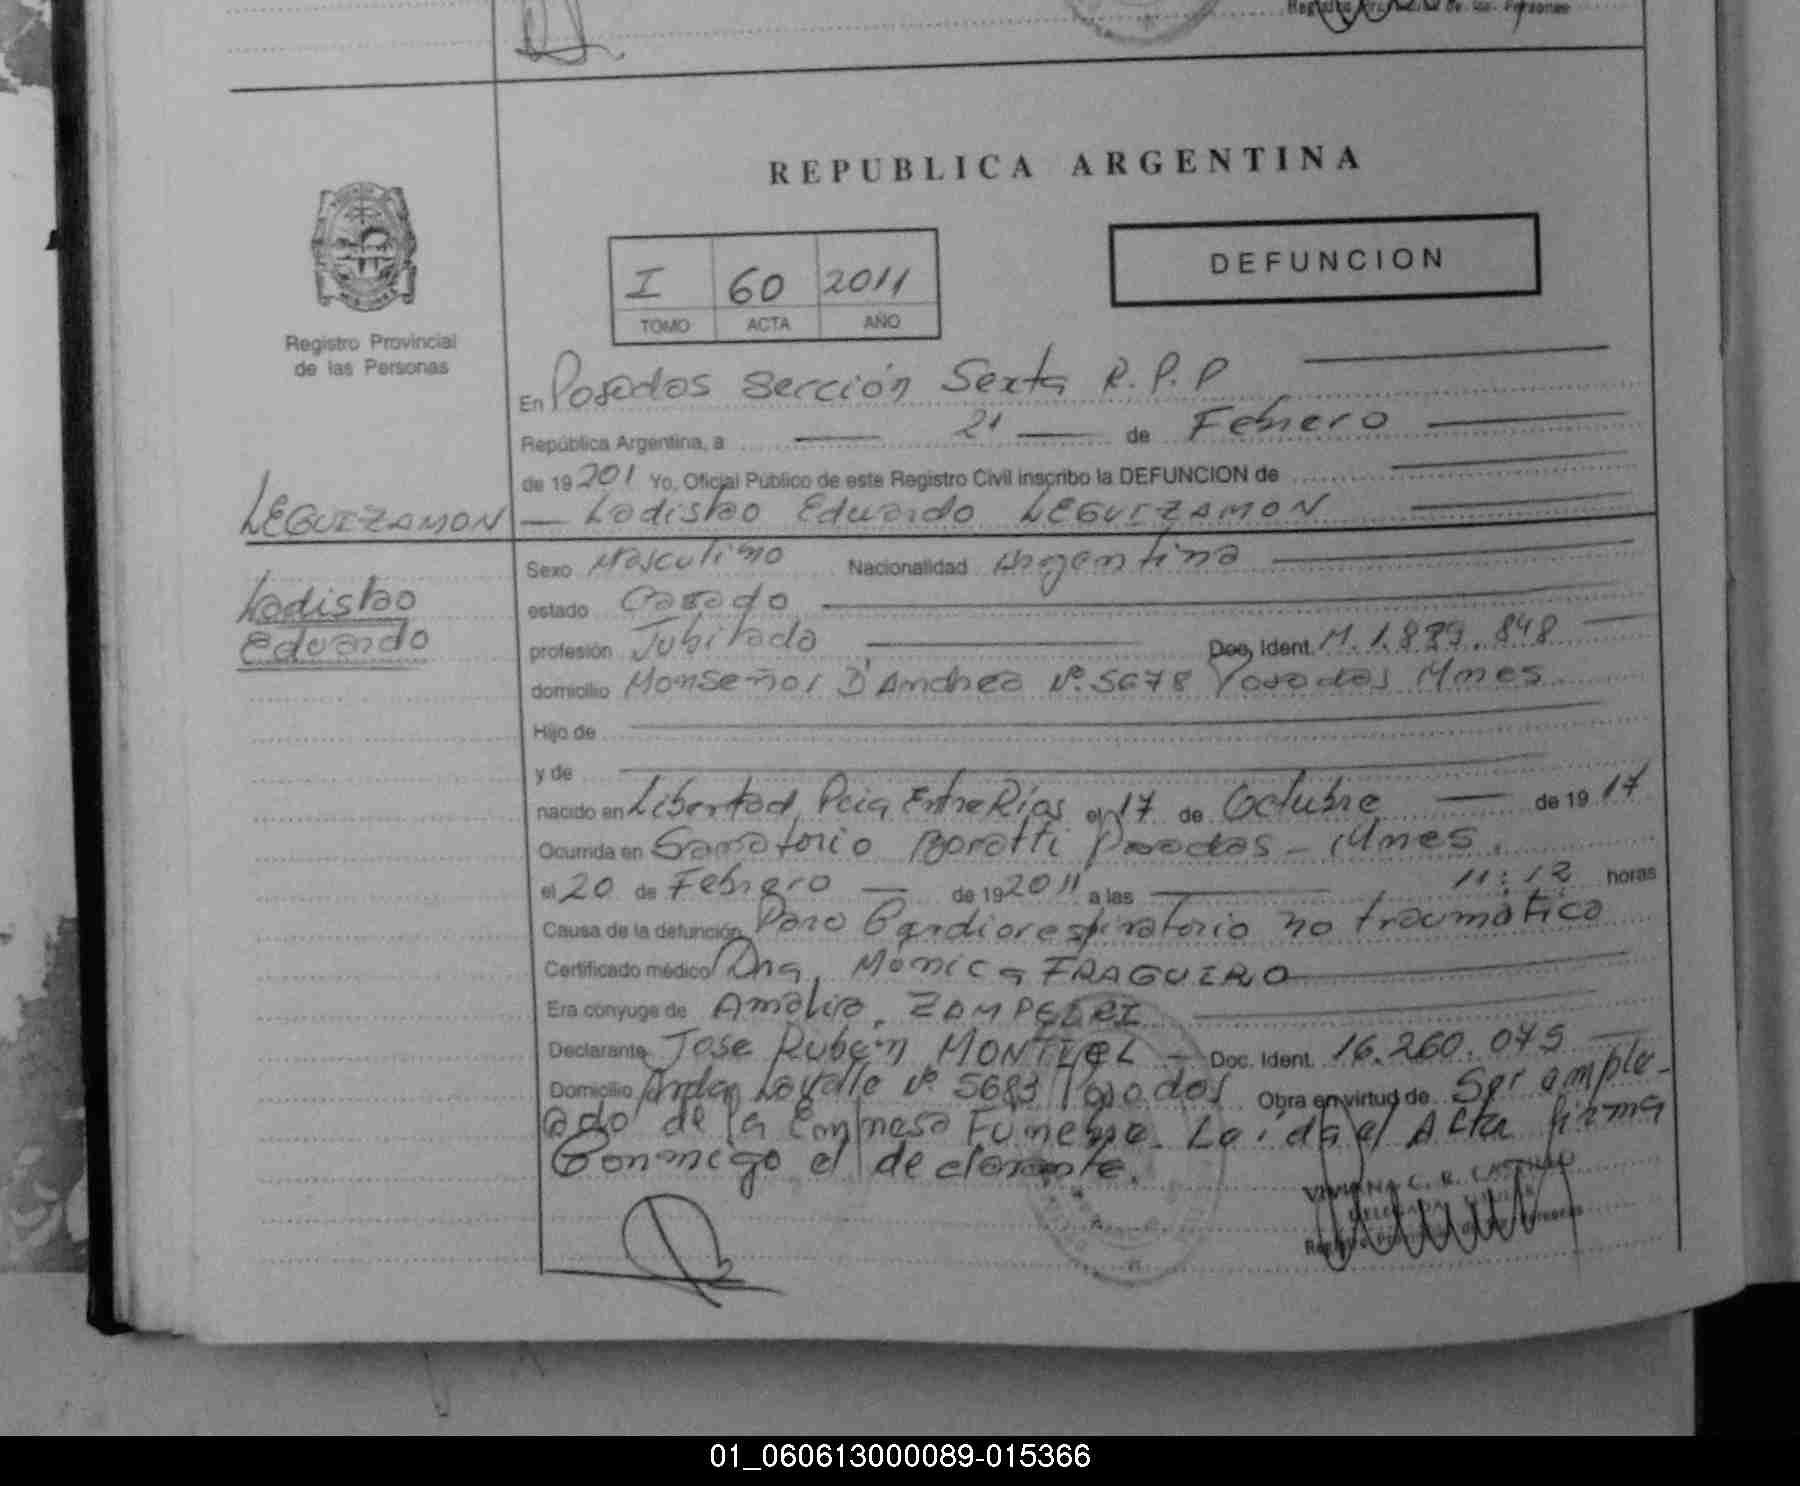 Registro Provincial de las Personas
REPUBLICA ARGENTINA
DEFUNCION
I 60 2011
TOMO ACTA AÑO
Registro Provincial
de las Personas
En Posadas Sección Sexta R.P.P
República Argentina, a 21 de Febrero
de 19 201 Yo, Oficial Público de este Registro Civil inscribo la DEFUNCION de
LEGUIZAMON
Ladislao Eduardo LEGUIZAMON
Sexo Masculino Nacionalidad Argentina
Ladislao
Eduardo
estado Casado
profesión Jubilado Doc. Ident. M.1.889.848
domicilio Monseñor D'Andrea Nº 5678 Posadas Mnes
Hijo de
y de
nacido en Libertad Pcia Entre Ríos el 17 de Octubre de 19 17
Ocurrida en Sanatorio Boratti Posadas - Mnes.
el 20 de Febrero de 19 2011 a las 11:12 horas
Causa de la defunción Paro Cardiorespiratorio no traumatico
Certificado médico Dra. Monica FRAGUERO
Era conyuge de Amalia ZAMPEDRI
Declarante Jose Rubén MONTIEL Doc. Ident. 16.260.075
Domicilio Lavalle Nº 5683 Posados Obra en virtud de Ser emple-
ado de la Empresa Funebre. Leída el Acta firma
Conmigo el declarante.
VIVIANA C. R. CASTILLO
DELEGADA
01_060613000089-015366